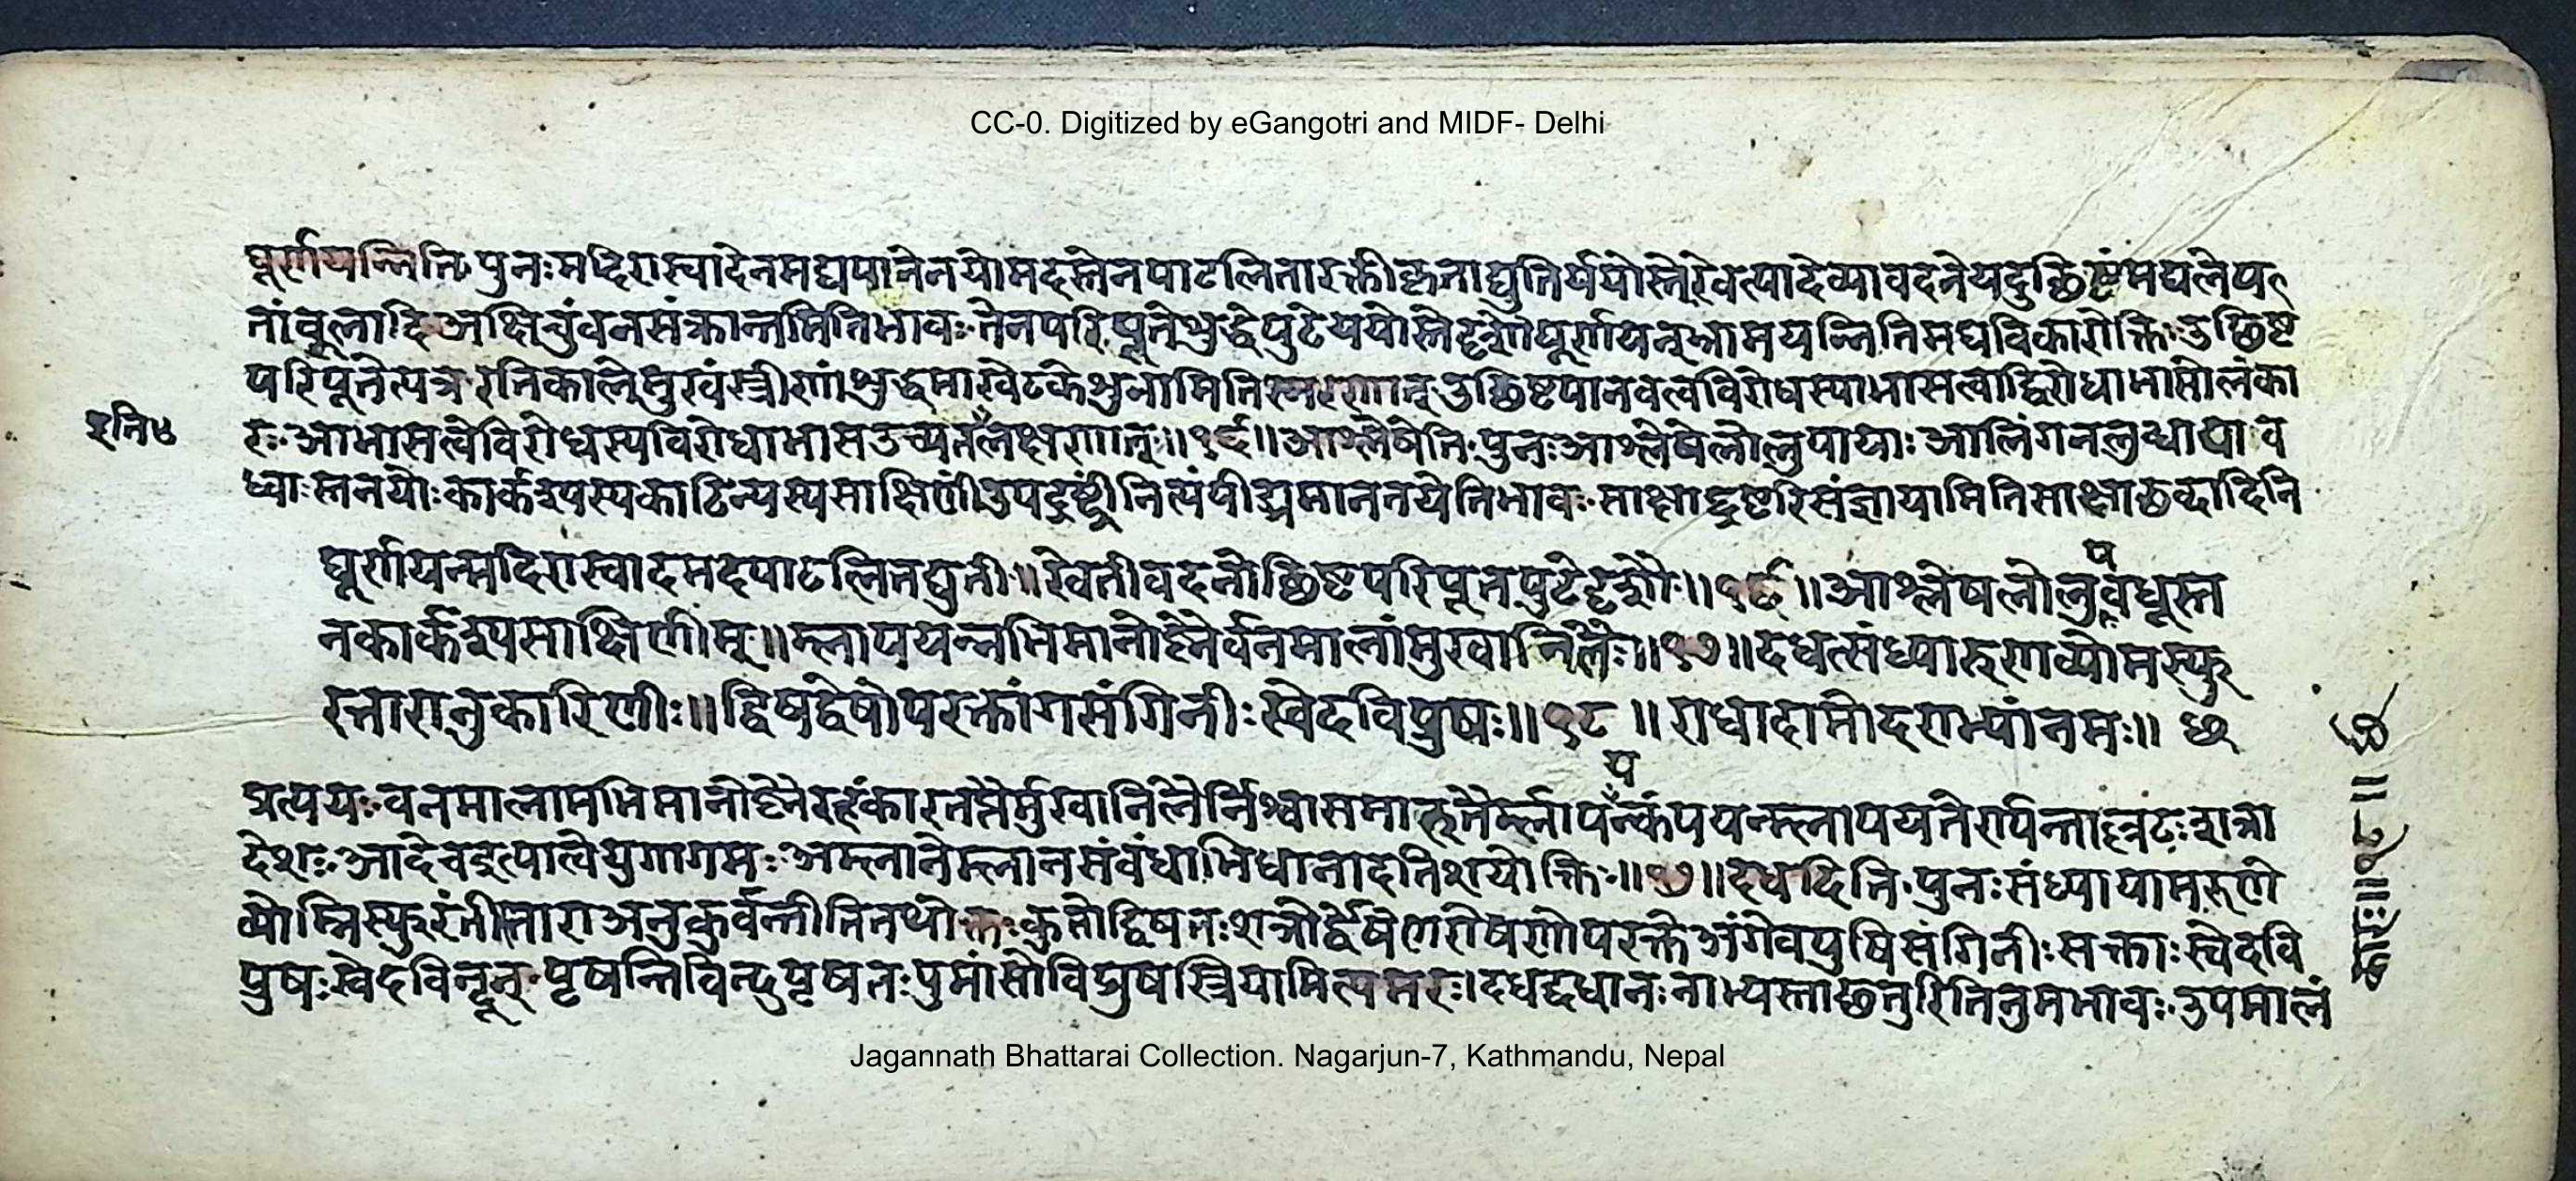 CC-0. Digitized by eGangotri and MIDF- Delhi
घूर्णयन्निति पुनः मदिरास्वादेन मद्यपानेन यो मदस्तेन पाटलिता रक्तीकृता द्युतिर्ययोस्ते रेवत्या देव्या वदने यदुच्छिष्टं मद्यलेप
तांबूलादि अक्षिचुंबनसंक्रान्तमिति भावः तेन परिपूते शुद्धे पुटे ययोस्ते दृशौ घूर्णयन् भ्रामयन्निति मद्यविकारोक्तिः उच्छिष्ट
परिपूतेत्यत्र रतिकाले मुखं स्त्रीणां शुद्धमाखेटके शुनामिति स्मरणात् उच्छिष्टपानवत्वविरोधस्याभासत्वाद्विरोधाभासोलंका
इति
रः आभासत्वे विरोधस्य विरोधाभास उच्यत लक्षणात् ॥१६॥ आश्लेषेति पुनः आश्लेषे लोलुपायाः आलिंगनलुब्धाया व
ध्वाः स्तनयोः कार्कश्यस्य काठिन्यस्य साक्षिणीं उपद्रष्ट्रीं नित्यं पीड्यमानतयेति भावः साक्षाद्द्रष्टरि संज्ञायामिति साक्षाच्छब्दादिनि
घूर्णयन्मदिरास्वादमदपाटलितद्युती ॥ रेवतीवदनोच्छिष्टपरिपूतपुटे दृशौ ॥१६॥ आश्लेषलोलुपवधूस्त
नकार्कश्यसाक्षिणीम् ॥ म्लापयन्नभिमानोष्णैर्वनमालां मुखानिलैः ॥१७॥ दधत्संध्यारुणव्योमस्फु
रत्तारानुकारिणीः ॥ द्विषद्द्वेषोपरक्तांगसंगिनीः स्वेदविप्रुषः ॥१८॥ राधादामोदराभ्यां नमः ॥
प्रत्ययः वनमालामभिमानोष्णैरहंकारतप्तैर्मुखानिलैर्निश्वासमारुतैर्म्लापयन्
देशः आदेच इत्यात्वे पुगागमः अम्लाने म्लानसंबंधाभिधानादतिशयोक्तिः ॥१७॥ दधदिति पुनः संध्यायामरुणे
व्योम्नि स्फुरंतीस्तारा अनुकुर्वन्तीति तथोक्ताः कुतो द्विषतः शत्रोर्द्वेषेण रोषणोपरक्ते अंगे वपुषि संगिनीः सक्ताः स्वेदवि
प्रुषः स्वेदबिन्दून् पृषन्ति बिन्दुपृषतः पुमांसो विप्रुषस्त्रियामित्यमरः । दधद्दधानः नाभ्यस्ताच्छतुरिति नुमभावः उपमालं
Jagannath Bhattarai Collection. Nagarjun-7, Kathmandu, Nepal